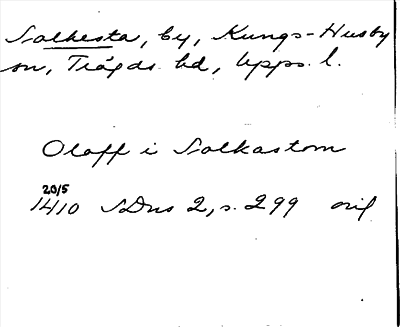 Salkesta, by, Kungs-Husby
sn, Trögds hd, Upps. l.
Olaff i Salkastom
20/5
1410 SDns 2, s. 299 orig